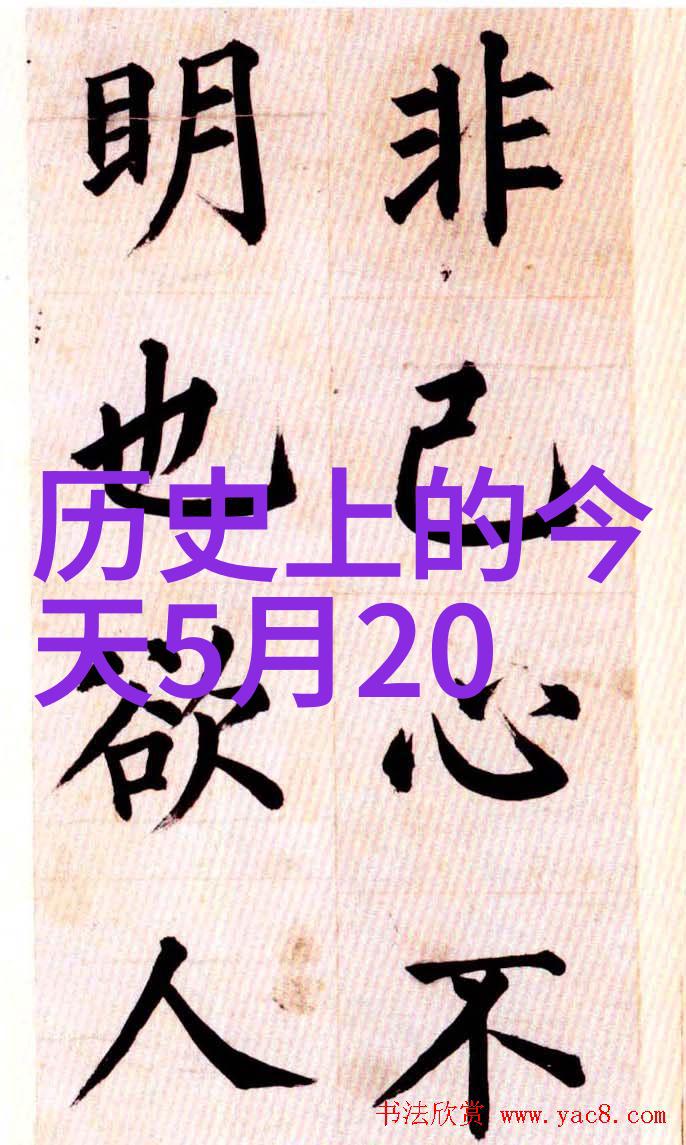 非己心不
明也欲人
历史上的今
天5月20
书法欣赏 www.yac8.com